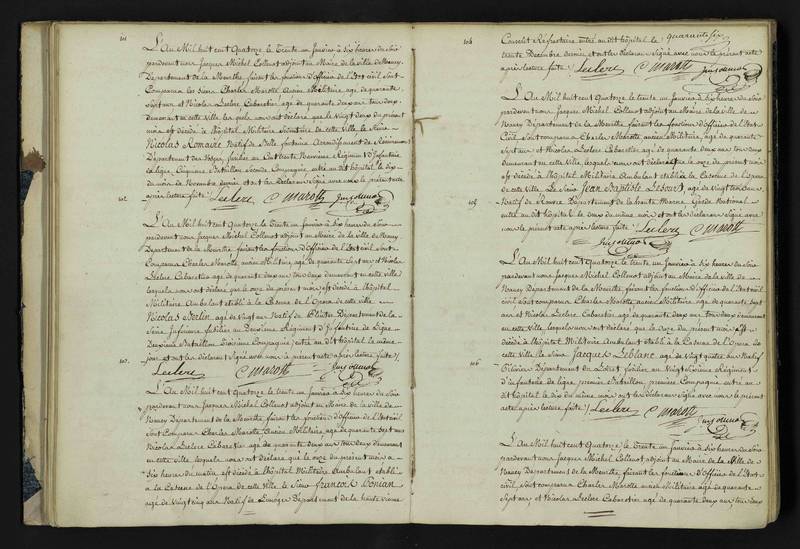 101
L'An Mil huit cent Quatorze le trente un Janvier à Six heures du Soir
pardevant nous Jacques Michel Collenot adjoint au Maire de la ville de Nancy
Département de la Meurthe faisant les fonctions d'officier de l'Etat civil Sont
Comparus les Sieurs Charles Marotte Ancien Militaire, agé de quarante
Sept ans et Nicolas Leclerc Cabaretier agé de quarante deux ans tous deux
demeurant en cette Ville les quels nous ont déclaré que le vingt deux du présent
mois est décédé à l'hôpital Militaire de cette ville le Sieur
Nicolas Romaire Natif de Belle fontaine Arrondissement de Remiremont
Département des Vosges, fusilier au Régiment d'Infanterie
de ligne, Cinquième Bataillon Seconde Compagnie, entré au dit hôpital le dix
du mois de Novembre dernier et ont les déclarans Signé avec nous le présent acte
après lecture faite / Leclerc C marotte
102
L'An Mil huit cent Quatorze le Trente un Janvier à Six heures du Soir
pardevant nous Jacques Michel Collenot adjoint au Maire de la ville de Nancy
Département de la Meurthe faisant les fonctions d'officier de l'Etat civil Sont
Comparus Charles Marotte, ancien Militaire, agé de quarante Sept ans et Nicolas
Leclerc Cabaretier agé de quarante deux ans tous deux demeurant en cette ville
lesquels nous ont déclaré que le onze du présent mois est décédé à l'hôpital
Militaire Ambulant établi à la Caserne de l'Opera de cette ville
Nicolas Berlin, agé de vingt ans Natif de Département de la
Seine Inférieure fusilier au Deuxième Régiment d'Infanterie de Ligne
Deuxième Bataillon Troisième Compagnie, entré au dit hôpital le même
jour et ont les déclarans Signé avec nous le présent acte après lecture faite /
Leclerc C marotte
L'An Mil huit cent Quatorze le trente un Janvier à Six heures du Soir
pardevant nous Jacques Michel Collenot adjoint au Maire de la ville de
Nancy Département de la Meurthe faisant les fonctions d'officier de l'Etat civil
Sont Comparus Charles Marotte Ancien Militaire, agé de quarante Sept ans
Nicolas Leclerc Cabaretier, agé de quarante deux ans tous deux demeurant
en cette ville lesquels nous ont déclaré que le onze du présent mois à
Six heures du matin est décédé à l'hôpital Militaire Ambulant établi
à la Caserne de l'Opera de cette ville le Sieur François
agé de vingt cinq ans Natif de Limoges Département de la haute Vienne
104
Conscrit Réfractaire entré au dit hôpital le
trente Décembre dernier et ont les déclarans Signé avec nous le présent acte
après lecture faite / Leclerc C marotte
L'An Mil huit cent Quatorze le trente un Janvier à Six heures du Soir
pardevant nous Jacques Michel Collenot adjoint au Maire de la ville de
Nancy Département de la Meurthe faisant les fonctions d'officier de l'Etat
Civil, Sont comparus Charles Marotte, ancien Militaire, agé de quarante
Sept ans et Nicolas Leclerc Cabaretier agé de quarante deux ans tous deux
demeurant en cette ville lesquels nous ont déclaré que le onze du présent mois
est décédé à l'hôpital Militaire Ambulant établi à la Caserne de l'Opera
de cette ville, Le Sieur Jean Baptiste agé de vingt un ans
Natif de Département de la haute Marne Garde National
entré au dit hôpital le deux du même mois et ont les déclarans Signé avec
nous le présent acte après lecture faite / Leclerc C marotte
L'An Mil huit cent Quatorze le trente un Janvier à Six heures du Soir
pardevant nous Jacques Michel Collenot adjoint au Maire de la ville de
Nancy Département de la Meurthe, faisant les fonctions d'officier de l'Etat
civil Sont comparus Charles Marotte, ancien Militaire agé de quarante Sept
ans et Nicolas Leclerc Cabaretier agé de quarante deux ans tous deux demeurant
en cette ville, lesquels nous ont déclaré que le onze du présent mois est
décédé à l'hôpital Militaire Ambulant établi à la Caserne de l'Opera de
cette ville le Sieur Jacques Leblanc agé de vingt quatre ans Natif
Département du Loiret fusilier au vingt Sixième Régiment
d'infanterie de ligne premier Bataillon, première Compagnie entré au
dit hôpital le dix du même mois et ont les déclarans Signé avec nous le présent
acte après lecture faite / Leclerc C marotte
106
L'An Mil huit cent Quatorze le trente un Janvier à Six heures du Soir
pardevant nous Jacques Michel Collenot adjoint au Maire de la ville de
Nancy Département de la Meurthe, faisant les fonctions d'officier de l'Etat
civil, Sont comparus Charles Marotte ancien Militaire agé de quarante
Sept ans, et Nicolas Leclerc Cabaretier agé de quarante deux ans, tous deux